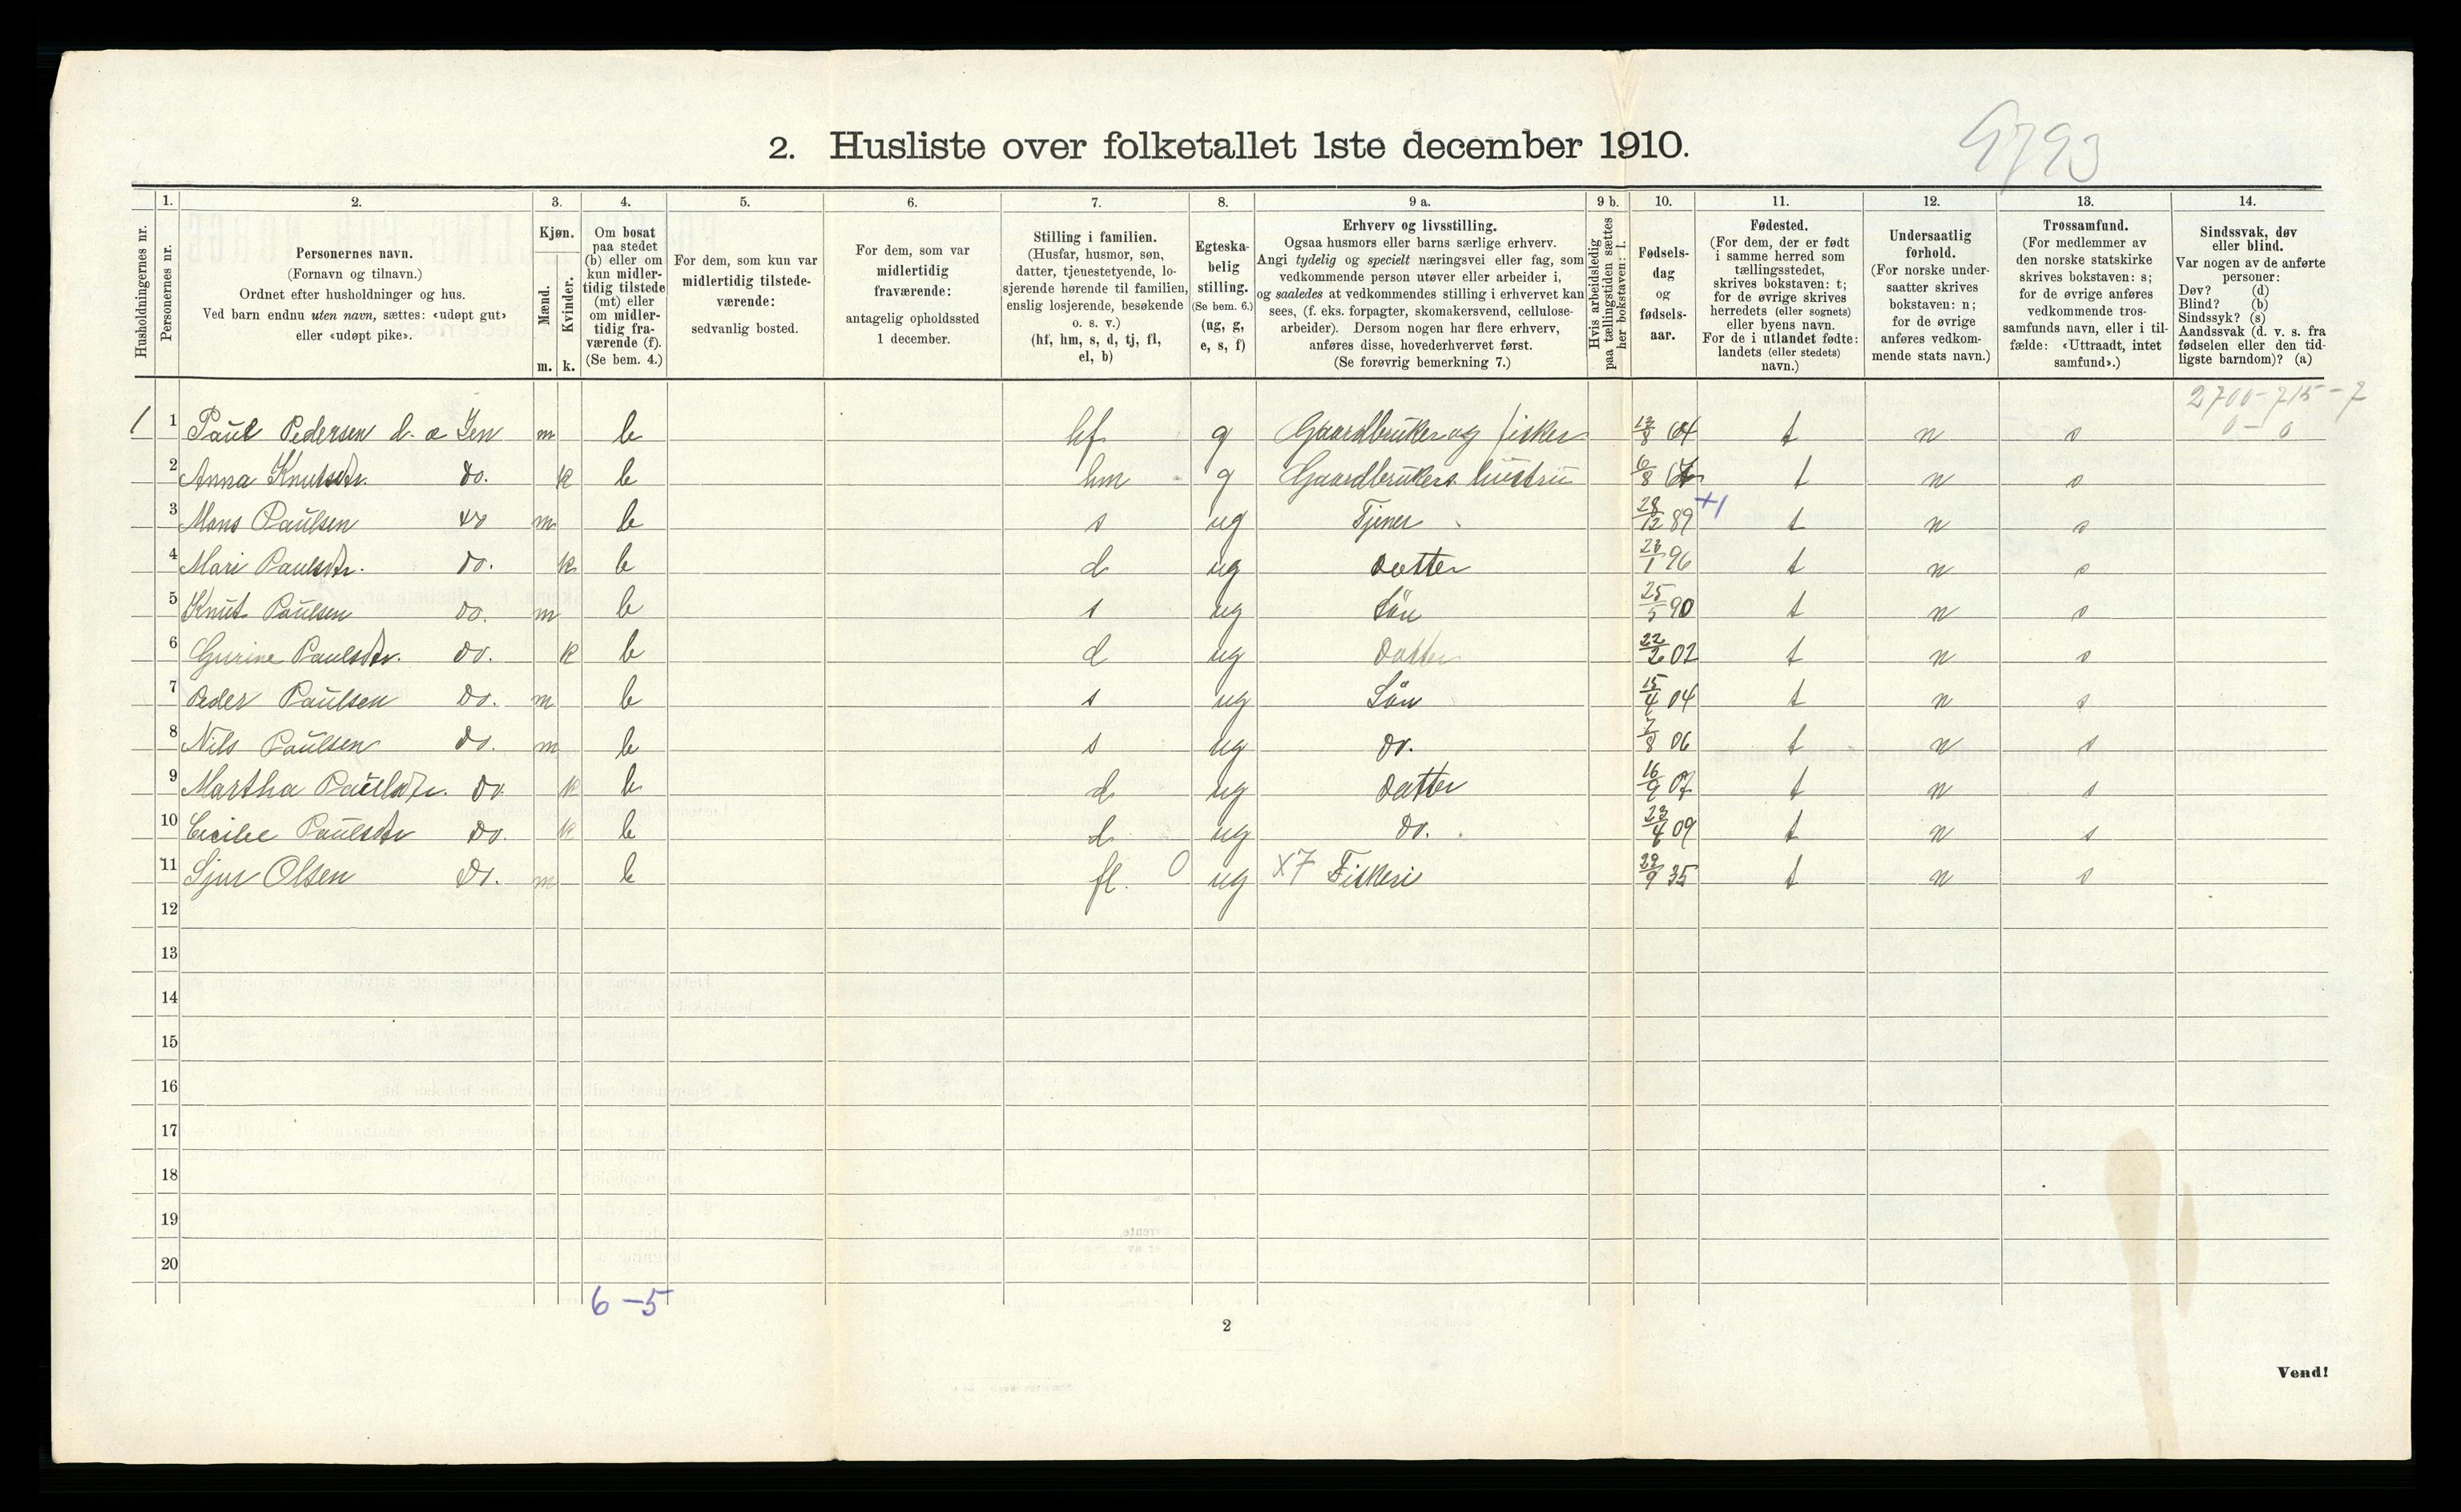 9793
2. Husliste over folketallet 1ste december 1910.
1. 2. 3. 4. 5. 6. 7. 8. 9 a. 9 b. 10. 11. 12. 13. 14.
Husholdningernes nr.
Personernes nr.
Personernes navn.
(Fornavn og tilnavn.)
Ordnet efter husholdninger og hus.
Ved barn endnu uten navn, sættes: «udøpt gut»
eller «udøpt pike».
Kjøn.
Mænd.
Kvinder.
m. k.
Om bosat
paa stedet
(b) eller om
kun midler-
tidig tilstede
(mt) eller
om midler-
tidig fra-
værende (f).
(Se bem. 4.)
For dem, som kun var
midlertidig tilstede-
værende:
sedvanlig bosted.
For dem, som var
midlertidig
fraværende:
antagelig opholdssted
1 december.
Stilling i familien.
(Husfar, husmor, søn,
datter, tjenestetyende, lo-
sjerende hørende til familien,
enslig losjerende, besøkende
o. s. v.)
(hf, hm, s, d, tj, fl,
el, b)
Egteska-
belig
stilling.
(Se bem. 6.)
(ug, g,
e, s, f)
Erhverv og livsstilling.
Ogsaa husmors eller barns særlige erhverv.
Angi tydelig og specielt næringsvei eller fag, som
vedkommende person utøver eller arbeider i,
og saaledes at vedkommendes stilling i erhvervet kan
sees, (f. eks. forpagter, skomakersvend, cellulose-
arbeider). Dersom nogen har flere erhverv,
anføres disse, hovederhvervet først.
(Se forøvrig bemerkning 7.)
Hvis arbeidsledig
paa tællingstiden sættes
her bokstaven: l.
Fødsels-
dag
og
fødsels-
aar.
Fødested.
(For dem, der er født
i samme herred som
tællingsstedet,
skrives bokstaven: t;
for de øvrige skrives
herredets (eller sognets)
eller byens navn.
For de i utlandet fødte:
landets (eller stedets)
navn.)
Undersaatlig
forhold.
(For norske under-
saatter skrives
bokstaven: n;
for de øvrige
anføres vedkom-
mende stats navn.)
Trossamfund.
(For medlemmer av
den norske statskirke
skrives bokstaven: s;
for de øvrige anføres
vedkommende tros-
samfunds navn, eller i til-
fælde: «Uttraadt, intet
samfund».)
Sindssvak, døv
eller blind.
Var nogen av de anførte
personer:
Døv? (d)
Blind? (b)
Sindssyk? (s)
Aandssvak (d. v. s. fra
fødselen eller den tid-
ligste barndom)? (a)
2700-715-7
0-0
1 1 Paul Pedersen d. æ Jen m b hf g Gaardbruker og fisker 13/8 64 t n s
2 Anna Knutsdtr. do. k b hm g Gaardbrukers hustru 6/8 t n s
3 Mons Paulsen do m b s ug Tjener 28/12 89 +1 t n s
4 Mari Paulsdtr. do. k b d ug Datter 23/1 96 t n s
5 Knut Paulsen do. m b s ug Sön 25/5 90 t n s
6 Gurine Paulsdtr. do. k b d ug Datter 22/2 02 t n s
7 Peder Paulsen do. m b s ug Sön 15/4 04 t n s
8 Nils Paulsen do. m b s ug do. 7/8 06 t n s
9 Martha Paulsdtr. do. k b d ug Datter 16/9 07 t n s
10 Cecilie Paulsdtr do. k b d ug do. 09 t n s
11 Sjur Olsen do. m b fl. 0 ug x7 Fiskeri 29/9 35 t n s
12
13
14
15
16
17
18
19
20
6-5
2
Vend!